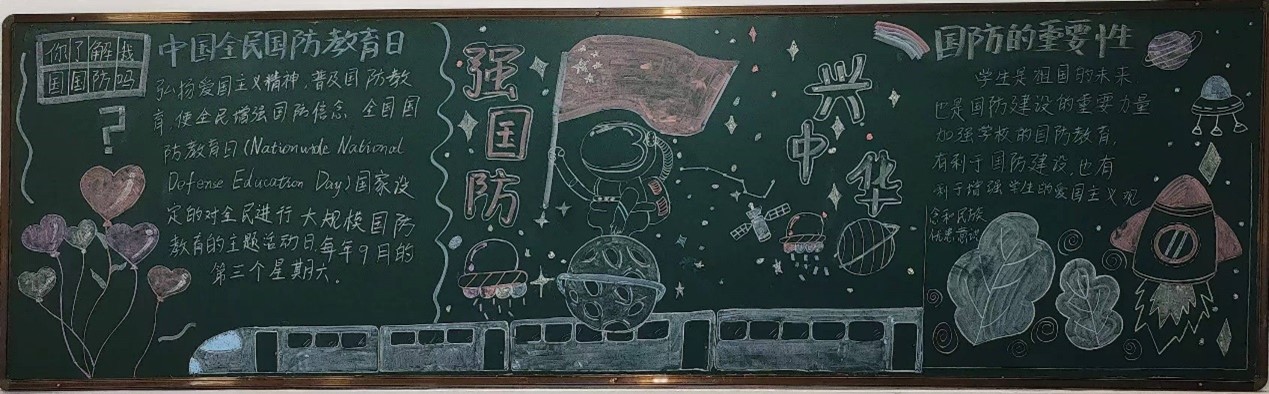 你了解我
国国防吗
?
中国全民国防教育日
弘扬爱国主义精神,普及国防教
育,使全民增强国防信念.全国国
防教育日(Nationwide National
Defense Education Day)国家设
定的对全民进行大规模国防
教育的主题活动日.每年9月的
第三个星期六.
强
国
防
兴
中
华
国防的重要性
学生是祖国的未来
也是国防建设的重要力量
加强学校的国防教育,
有利于国防建设,也有
利于增强学生的爱国主义观
念和民族
忧患意识